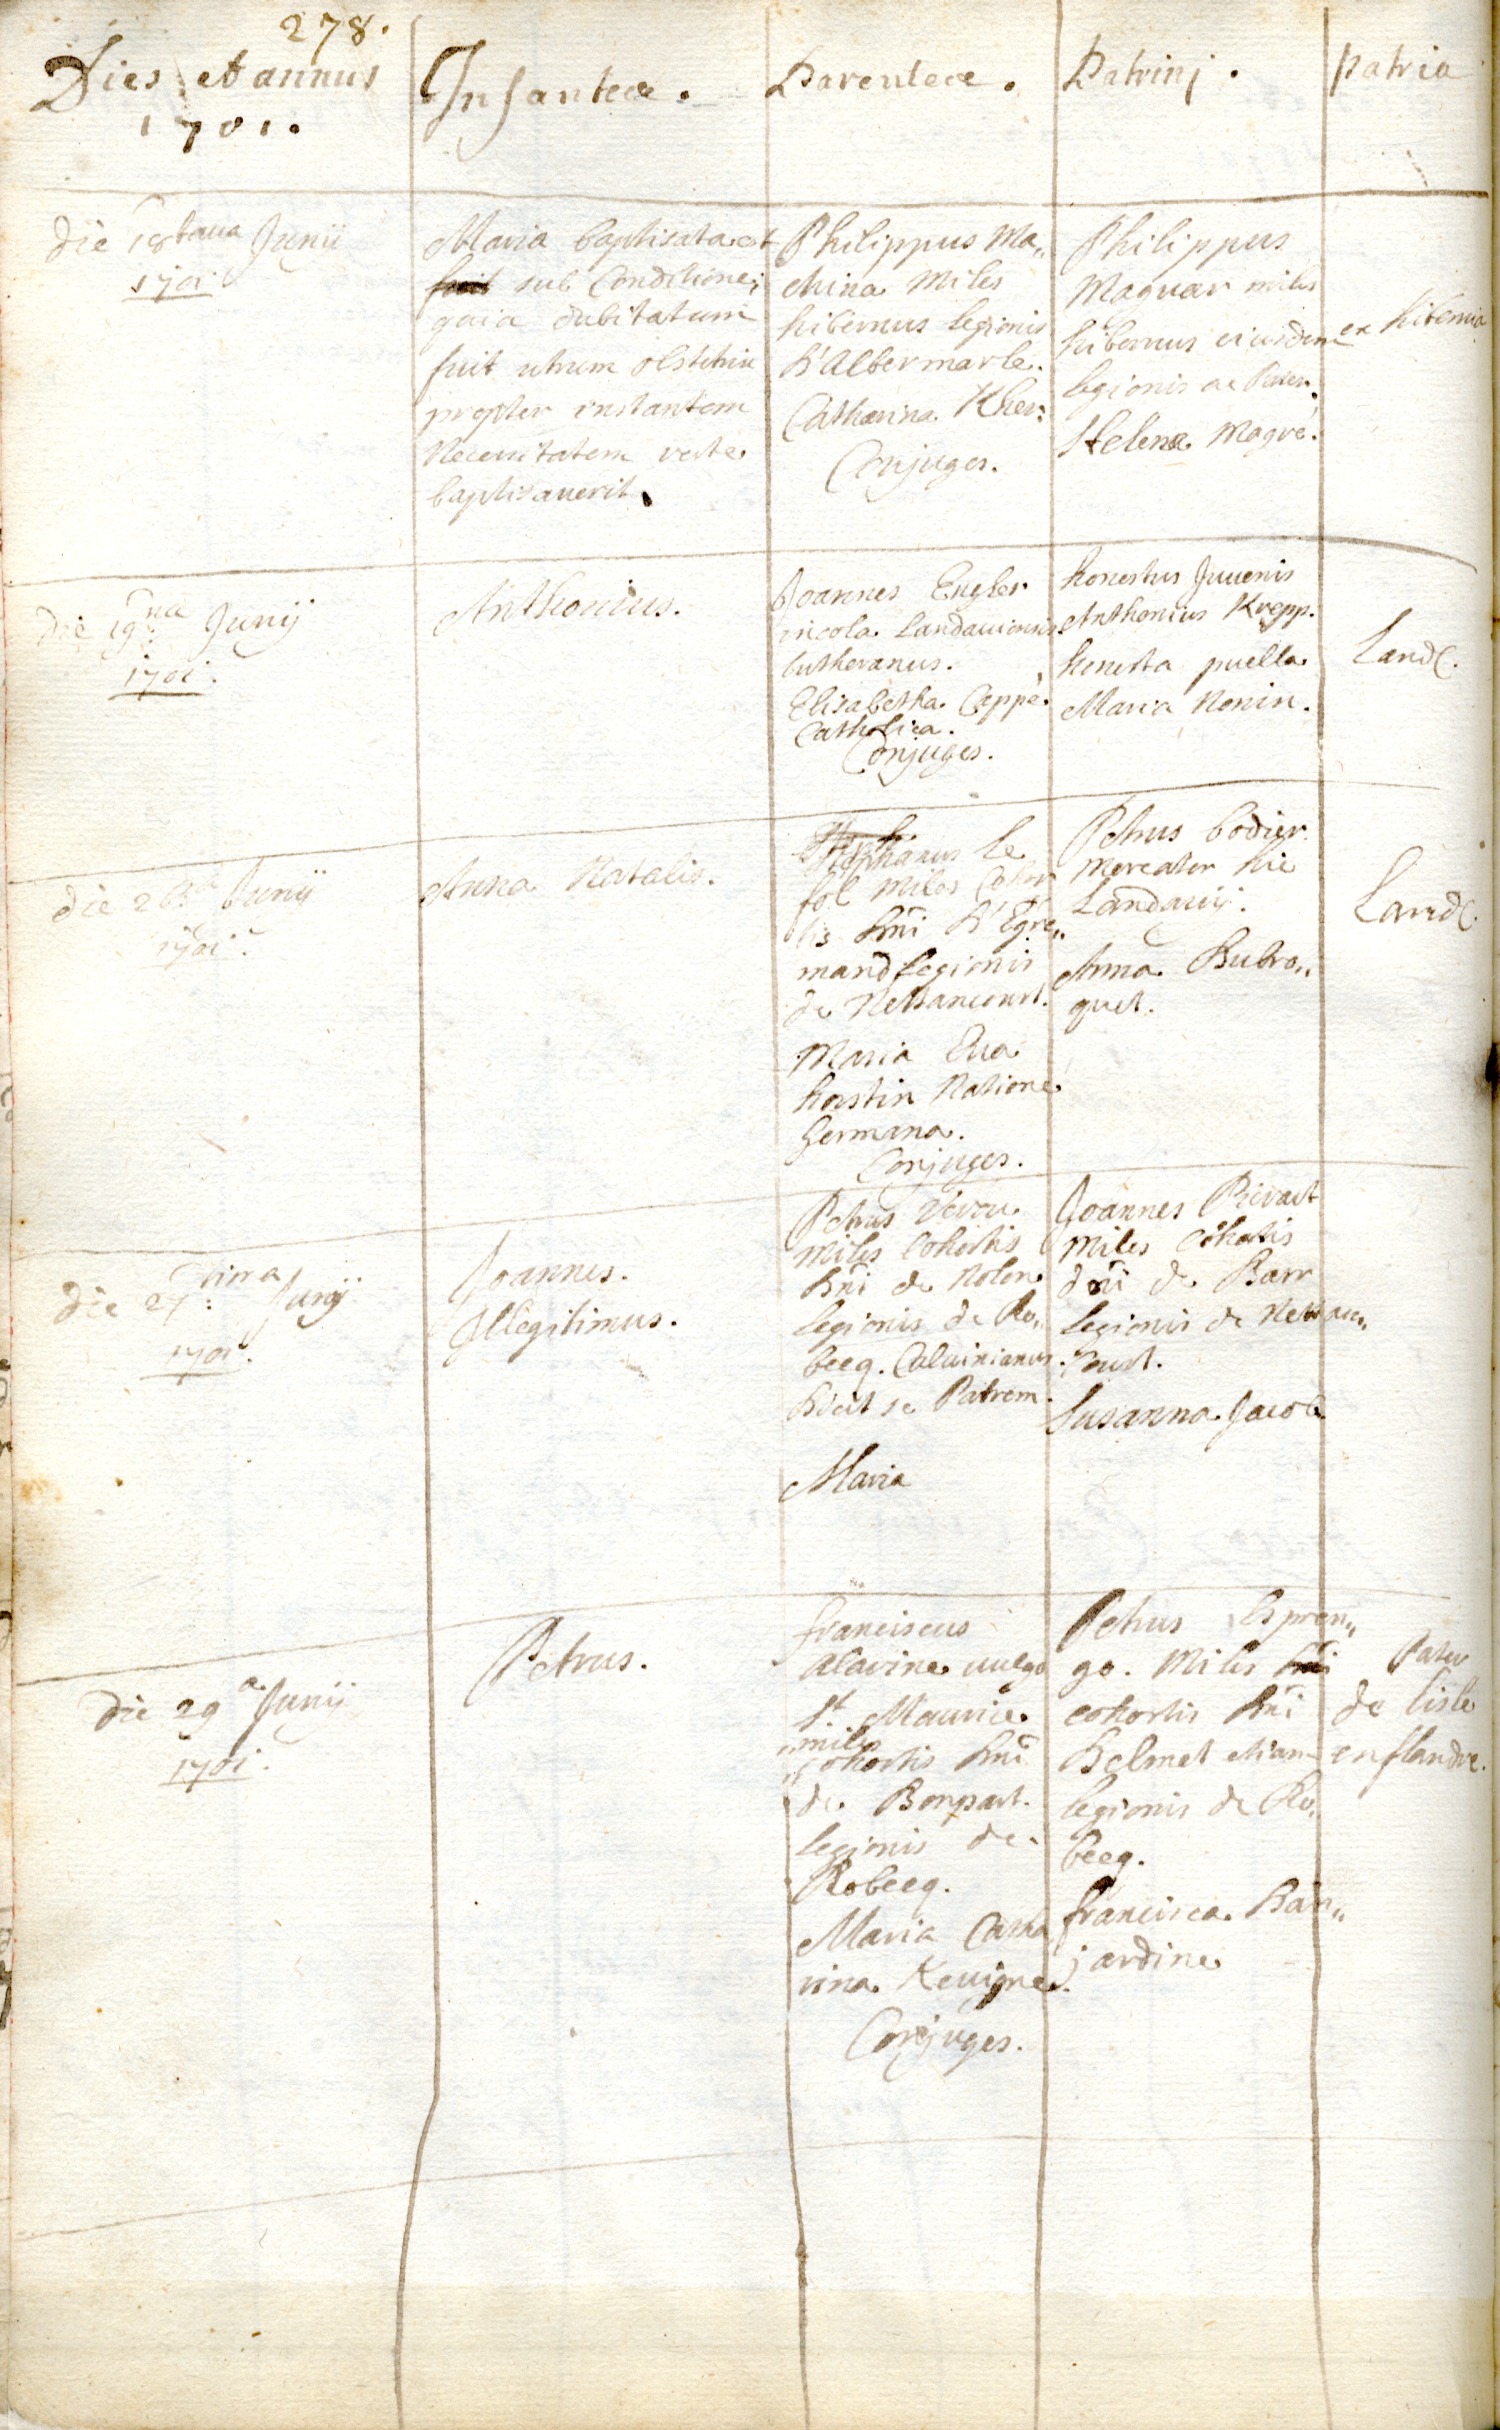 278.
Dies et annus
1701.
Infantece.
Parentece.
Patrinj.
patria
die 18tava Junii
1701.
Maria baptisata est
sub Conditione,
quia dubitatum
fuit utrum obstetrix
propter instantem
Necessitatem recte
baptisaverit.
Philippus Ma,,
china Miles
hibernus legionis
D'Albermarle.
Catharina Kher:
Conjuges.
Philippus
Maguar miles
hibernus eiusdem
legionis ac Pater.
Helena Magré.
ex hibernia
die 19na Junij
1701.
Anthonius.
Joannes Engler
incola Landaviensis
lutheranus.
Elisabetha Ceppé.
Catholica.
Conjuges.
honestus Juvenis
Anthonius Krepp.
honesta puella
Maria Nonin.
Land.
die 26a Junii
1701.
Anna Natalis.
Stephanus le
fol Miles Cohor
tis Dni D'Egre,,
mand legionis
de Nettancourt.
Maria Eva
hostin Natione
Germana.
Conjuges.
Petrus bodier
Mercator hic
Landavij.
Anna Dubro,,
quet.
Land.
die 27:tima Junij
1701.
Joannes.
Illegitimus.
Petrus
Miles Cohortis
Dni de Nolon
legionis de Ro,,
becq. Calvinianus.
Dicit se Patrem.
Maria
Joannes Rievart
Miles Cohortis
dni de Barr
legionis de Nettan,,
court.
Susanna Jacob
die 29a Junii
1701.
Petrus.
franciscus
Alavine vulgo
St. Maurice
miles
Cohortis Dni
de Bonpart.
legionis de
Robecq.
Maria Catha
rina Kevigne.
Conjuges.
Petrus lespron,,
go. Miles
cohortis Dni
Delmet etiam
legionis de Ro,,
becq.
francisca Dan,,
jardine
Pater
de lisle
en flandre.